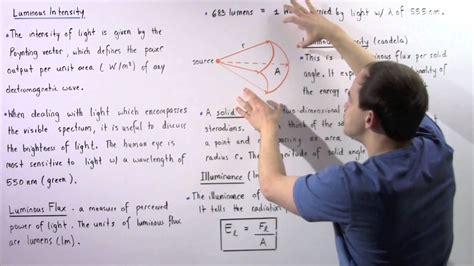 Luminous Intensity
• The intensity of light is given by the
Poynting vector, which defines the power
output per unit area (W/m²) of any
electromagnetic wave.
• When dealing with light which encompasses
the visible spectrum, it is useful to discuss
the brightness of light. The human eye is
most sensitive to light w/ a wavelength of
550 nm (green).
Luminous Flux - a measure of perceived
power of light. The units of luminous flux
are lumens (lm).
• 683 lumens = 1 by light w/ λ of 555 nm.
r
source
A
• A solid two-dimensional
steradians. think of the
a point and an area
radius r. magnitude of solid
Illuminance
• The illuminance of
It tells the radiation
E_ℓ = F_ℓ / A
(candela)
• This is flux per solid
angle. It of
the energy